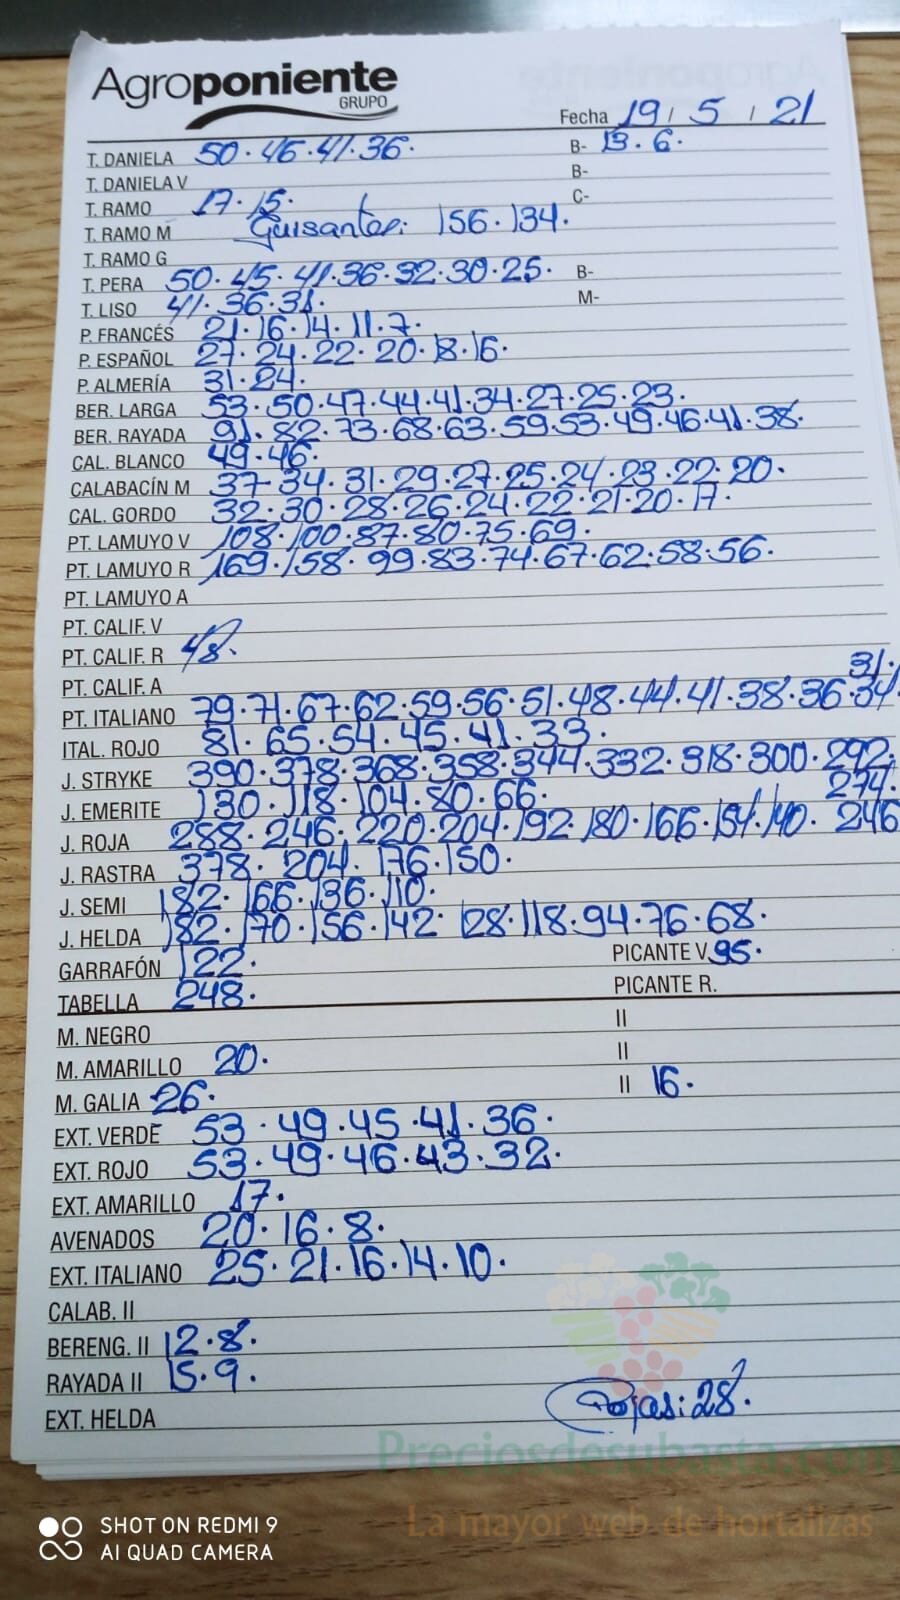 Agroponiente
GRUPO
Fecha 19 / 5 / 21
T. DANIELA 50 · 45 · 41 · 36 · B- 13 · 6 ·
T. DANIELA V B-
T. RAMO 17 · 15 · C-
T. RAMO M Guisantes: 156 · 134 ·
T. RAMO G
T. PERA 50 · 45 · 41 · 36 · 32 · 30 · 25 · B-
T. LISO 41 · 36 · 31 · M-
P. FRANCÉS 21 · 16 · 14 · 11 · 7 ·
P. ESPAÑOL 27 · 24 · 22 · 20 · 18 · 16 ·
P. ALMERÍA 31 · 24 ·
BER. LARGA 53 · 50 · 47 · 44 · 41 · 34 · 27 · 25 · 23 ·
BER. RAYADA 91 · 82 · 73 · 68 · 63 · 59 · 53 · 49 · 46 · 41 · 38 ·
CAL. BLANCO 49 · 46 ·
CALABACÍN M 37 · 34 · 31 · 29 · 27 · 25 · 24 · 23 · 22 · 20 ·
CAL. GORDO 32 · 30 · 28 · 26 · 24 · 22 · 21 · 20 · 17 ·
PT. LAMUYO V 108 · 100 · 87 · 80 · 75 · 69 ·
PT. LAMUYO R 169 · 158 · 99 · 83 · 74 · 67 · 62 · 58 · 56 ·
PT. LAMUYO A
PT. CALIF. V
PT. CALIF. R 48 ·
PT. CALIF. A 31 ·
PT. ITALIANO 79 · 71 · 67 · 62 · 59 · 56 · 51 · 48 · 44 · 41 · 38 · 36 · 34 ·
ITAL. ROJO 81 · 65 · 54 · 45 · 41 · 33 ·
J. STRYKE 390 · 378 · 368 · 358 · 344 · 332 · 318 · 300 · 292 ·
J. EMERITE 130 · 118 · 104 · 80 · 66 · 274 ·
J. ROJA 288 · 246 · 220 · 204 · 192 · 180 · 166 · 154 · 140 · 246
J. RASTRA 378 · 204 · 176 · 150 ·
J. SEMI 182 · 166 · 136 · 110 ·
J. HELDA 182 · 170 · 156 · 142 · 128 · 118 · 94 · 76 · 68 ·
GARRAFÓN 122 · PICANTE V. 95 ·
TABELLA 248 · PICANTE R.
M. NEGRO II
M. AMARILLO 20 · II
M. GALIA 26 · II 16 ·
EXT. VERDE 53 · 49 · 45 · 41 · 36 ·
EXT. ROJO 53 · 49 · 46 · 43 · 32 ·
EXT. AMARILLO 17 ·
AVENADOS 20 · 16 · 8 ·
EXT. ITALIANO 25 · 21 · 16 · 14 · 10 ·
CALAB. II
BERENG. II 12 · 8 ·
RAYADA II 15 · 9 ·
EXT. HELDA Rojas: 28 ·
Preciosdesubasta.com
La mayor web de hortalizas
SHOT ON REDMI 9
AI QUAD CAMERA